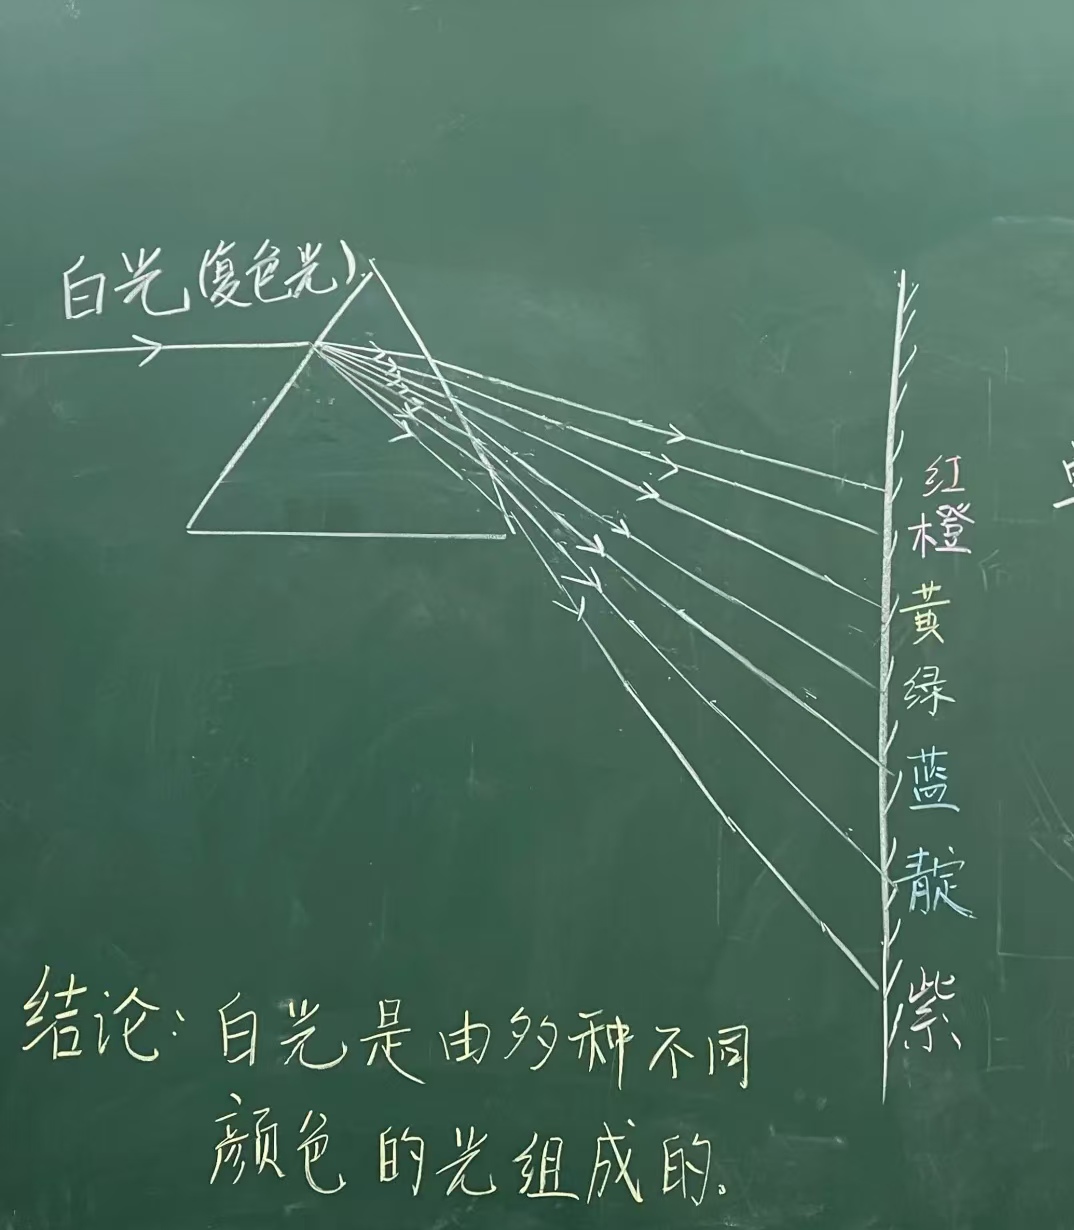 白光(复色光)
红
橙
黄
绿
蓝
靛
紫
结论：白光是由多种不同
颜色的光组成的。